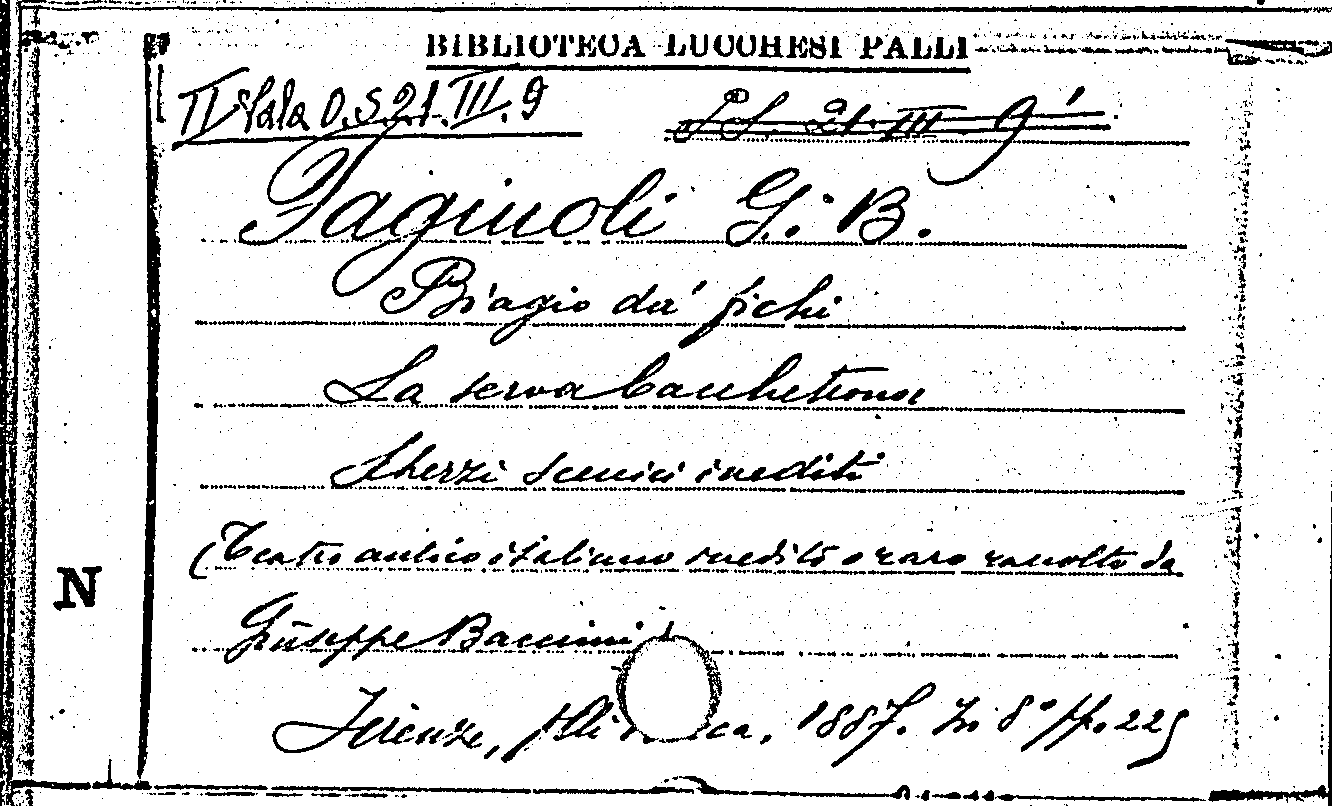 BIBLIOTECA LUCCHESI PALLI
II Sala O.S.21.III.9 21. III 9
Fagiuoli G: B.
Biagio da' fichi
La serva bacchettona
Scherzi scenici inediti
(Teatro antico italiano inedito o raro raccolto da
Giuseppe Baccini)
N
Firenze, 1887. In 8° pp. 225